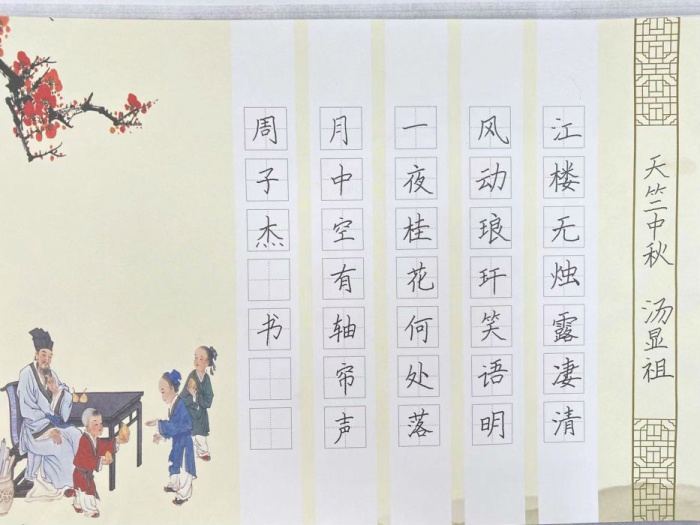 天竺中秋 汤显祖
江楼无烛露凄清
风动琅玕笑语明
一夜桂花何处落
月中空有轴帘声
周子杰 书